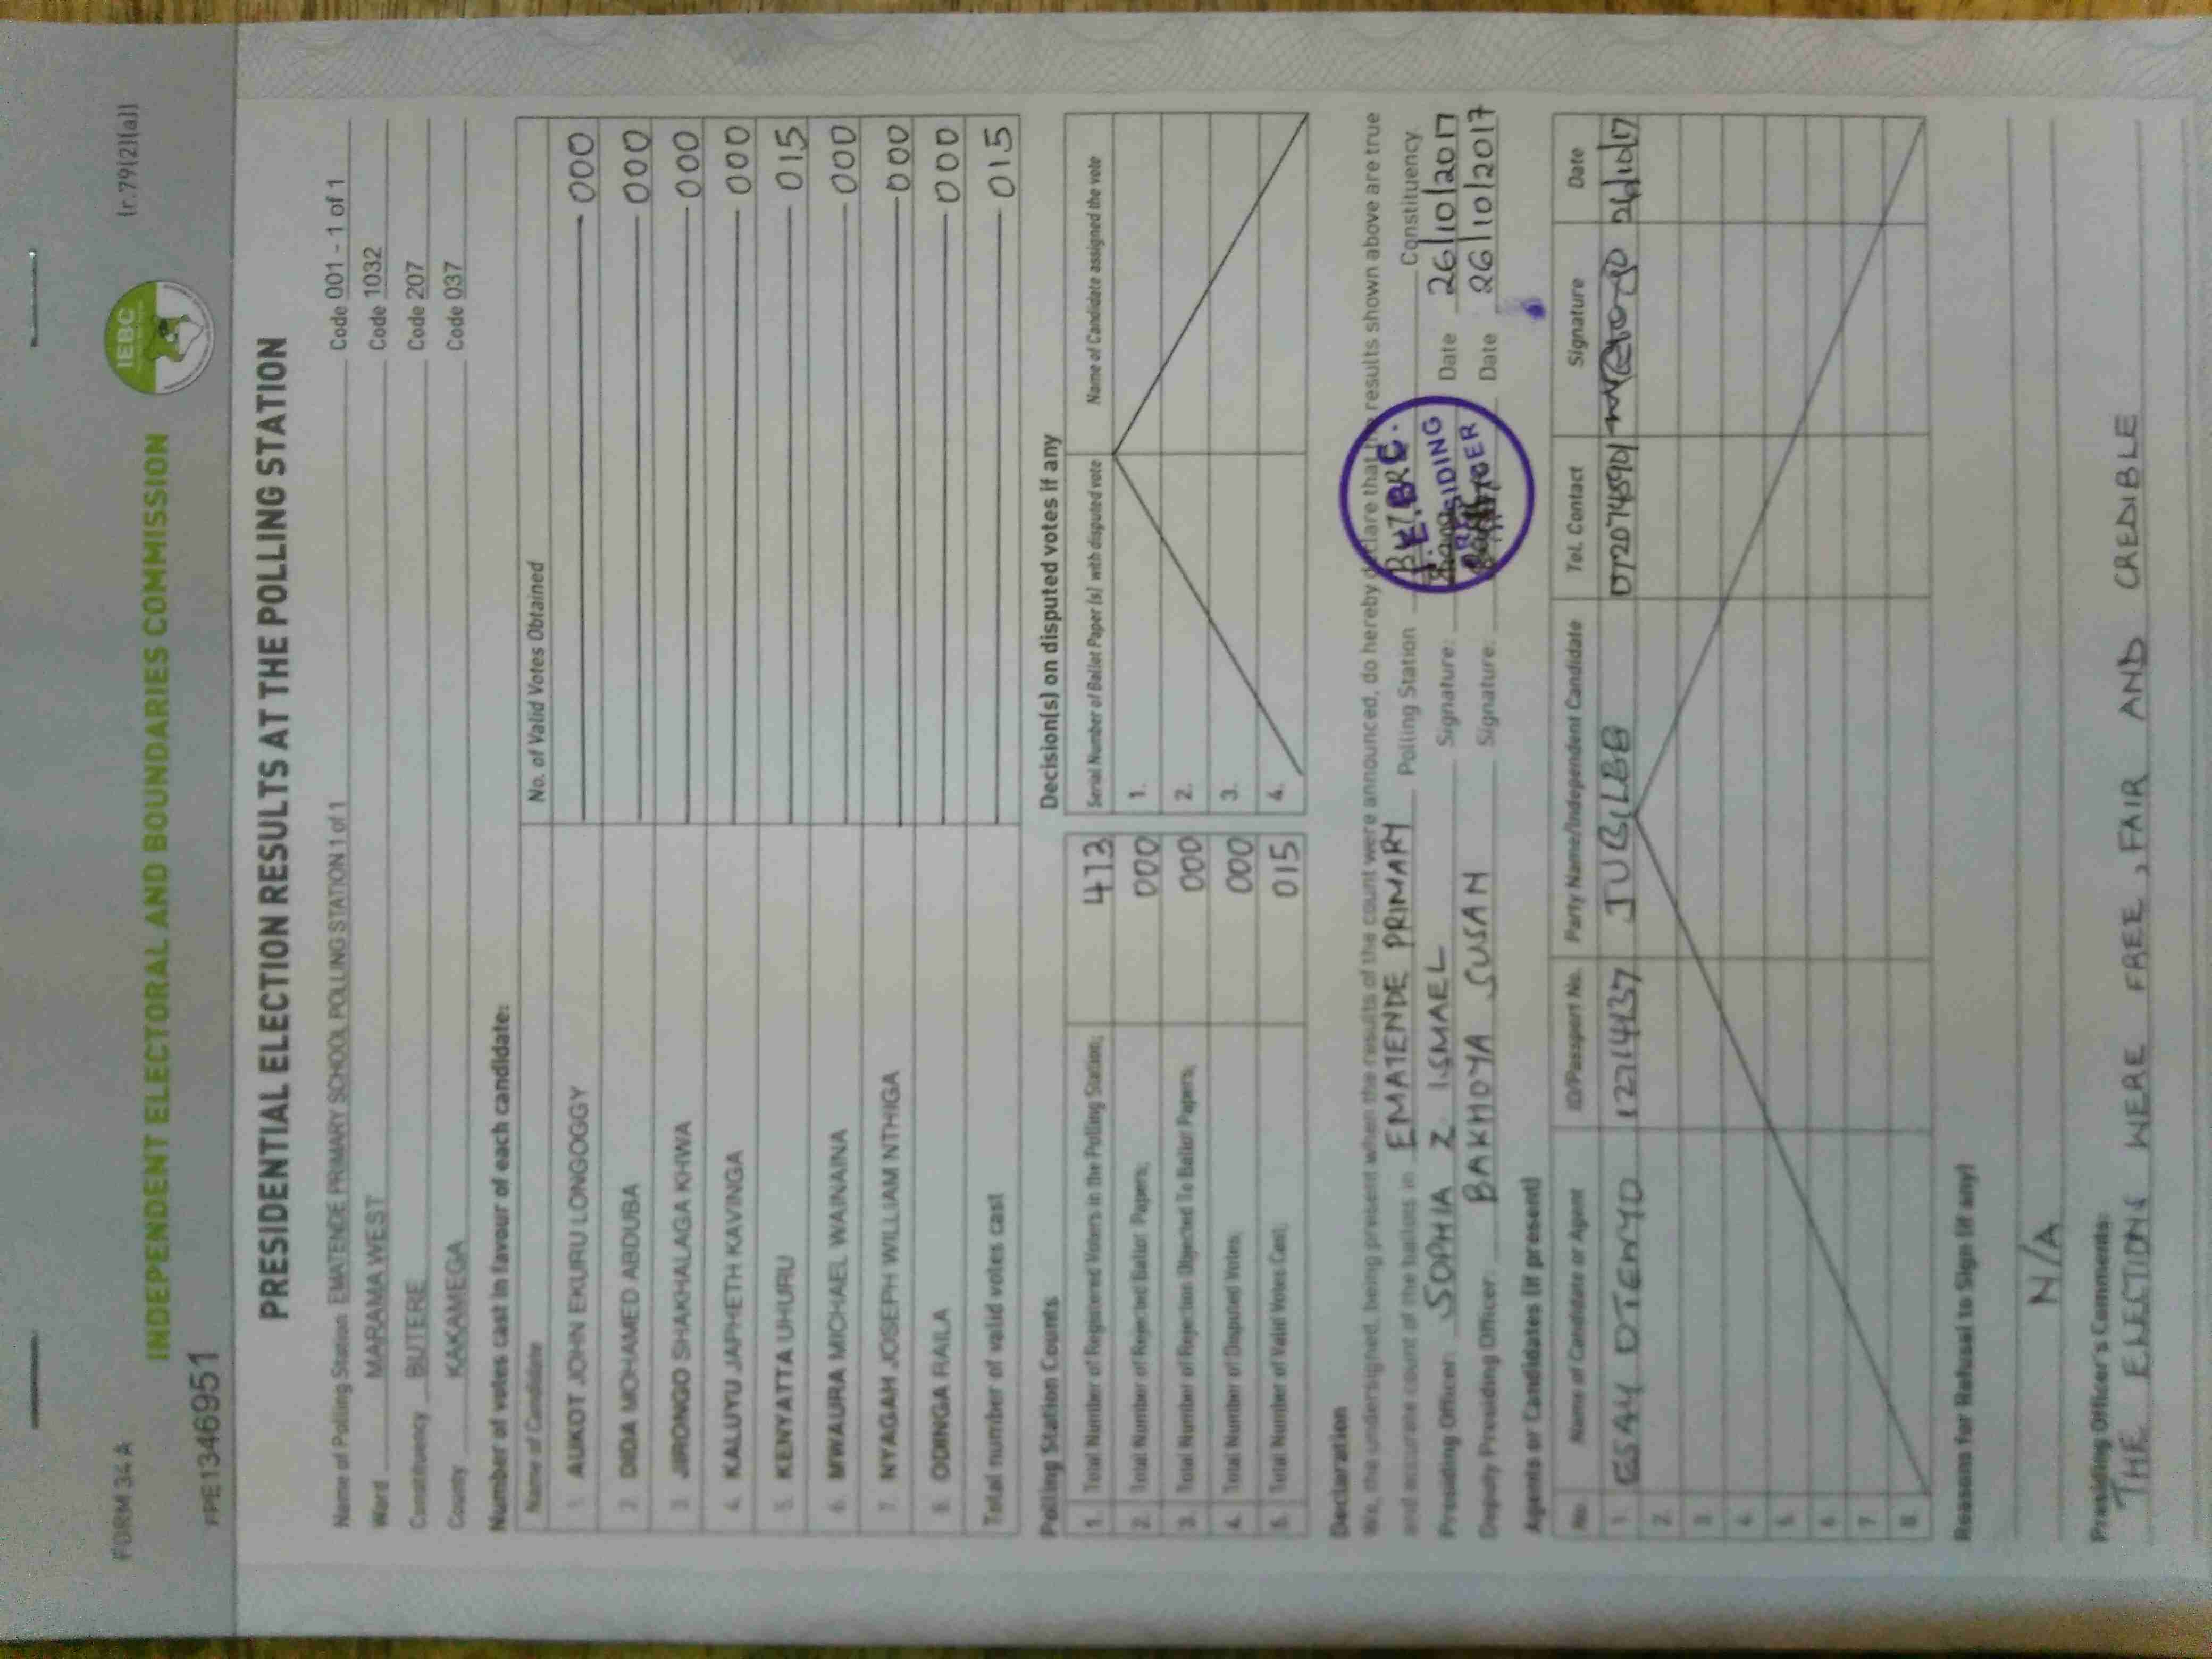 FORM 34A (r.79(2)(a))
INDEPENDENT ELECTORAL AND BOUNDARIES COMMISSION
IEBC
PE1346951
PRESIDENTIAL ELECTION RESULTS AT THE POLLING STATION
Name of Polling Station EMATENDE PRIMARY SCHOOL POLLING STATION 1 of 1 Code 001 - 1 of 1
Ward MARAMA WEST Code 1032
Constituency BUTERE Code 207
County KAKAMEGA Code 037
Number of votes cast in favour of each candidate:
Name of Candidate No. of Valid Votes Obtained
1. AUKOT JOHN EKURU LONGOGGY 000
2. DIDA MOHAMED ABDUBA 000
3. JIRONGO SHAKHALAGA KHWA 000
4. KALUYU JAPHETH KAVINGA 000
5. KENYATTA UHURU 015
6. MWAURA MICHAEL WAINAINA 000
7. NYAGAH JOSEPH WILLIAM NTHIGA 000
8. ODINGA RAILA 000
Total number of valid votes cast 015
Polling Station Counts
1. Total Number of Registered Voters in the Polling Station; 413
2. Total Number of Rejected Ballot Papers; 000
3. Total Number of Rejection Objected To Ballot Papers; 000
4. Total Number of Disputed Votes; 000
5. Total Number of Valid Votes Cast; 015
Decision(s) on disputed votes if any
Serial Number of Ballot Paper (s) with disputed vote Name of Candidate assigned the vote
1.
2.
3.
4.
Declaration
We, the undersigned, being present when the results of the count were announced, do hereby declare that the results shown above are true
and accurate count of the ballots in EMATENDE PRIMARY Polling Station Constituency
Presiding Officer: SOPHIA Z ISMAEL Signature: Date 26/10/2017
Deputy Presiding Officer: BAKHOYA SUSAN Signature: Date 26/10/2017
I.E.B.C.
PRESIDING
OFFICER
Agents or Candidates (if present)
No. Name of Candidate or Agent ID/Passport No. Party Name/Independent Candidate Tel. Contact Signature Date
1. ESAU OTENYO 12714437 JUBILEE 26/10/17
2.
3.
4.
5.
6.
7.
8.
Reasons for Refusal to Sign (if any)
N/A
Presiding Officer's Comments:
THE ELECTIONS WERE FREE, FAIR AND CREDIBLE